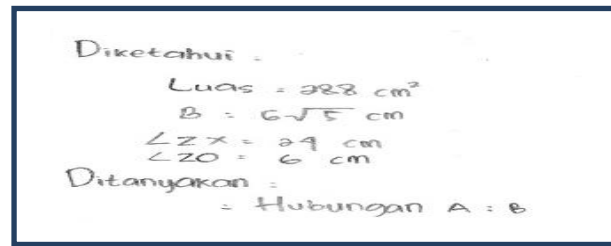 Diketahui :
Luas = 288 cm²
B = 6√5 cm
∠ZX = 24 cm
∠ZO = 6 cm
Ditanyakan :
= Hubungan A : B